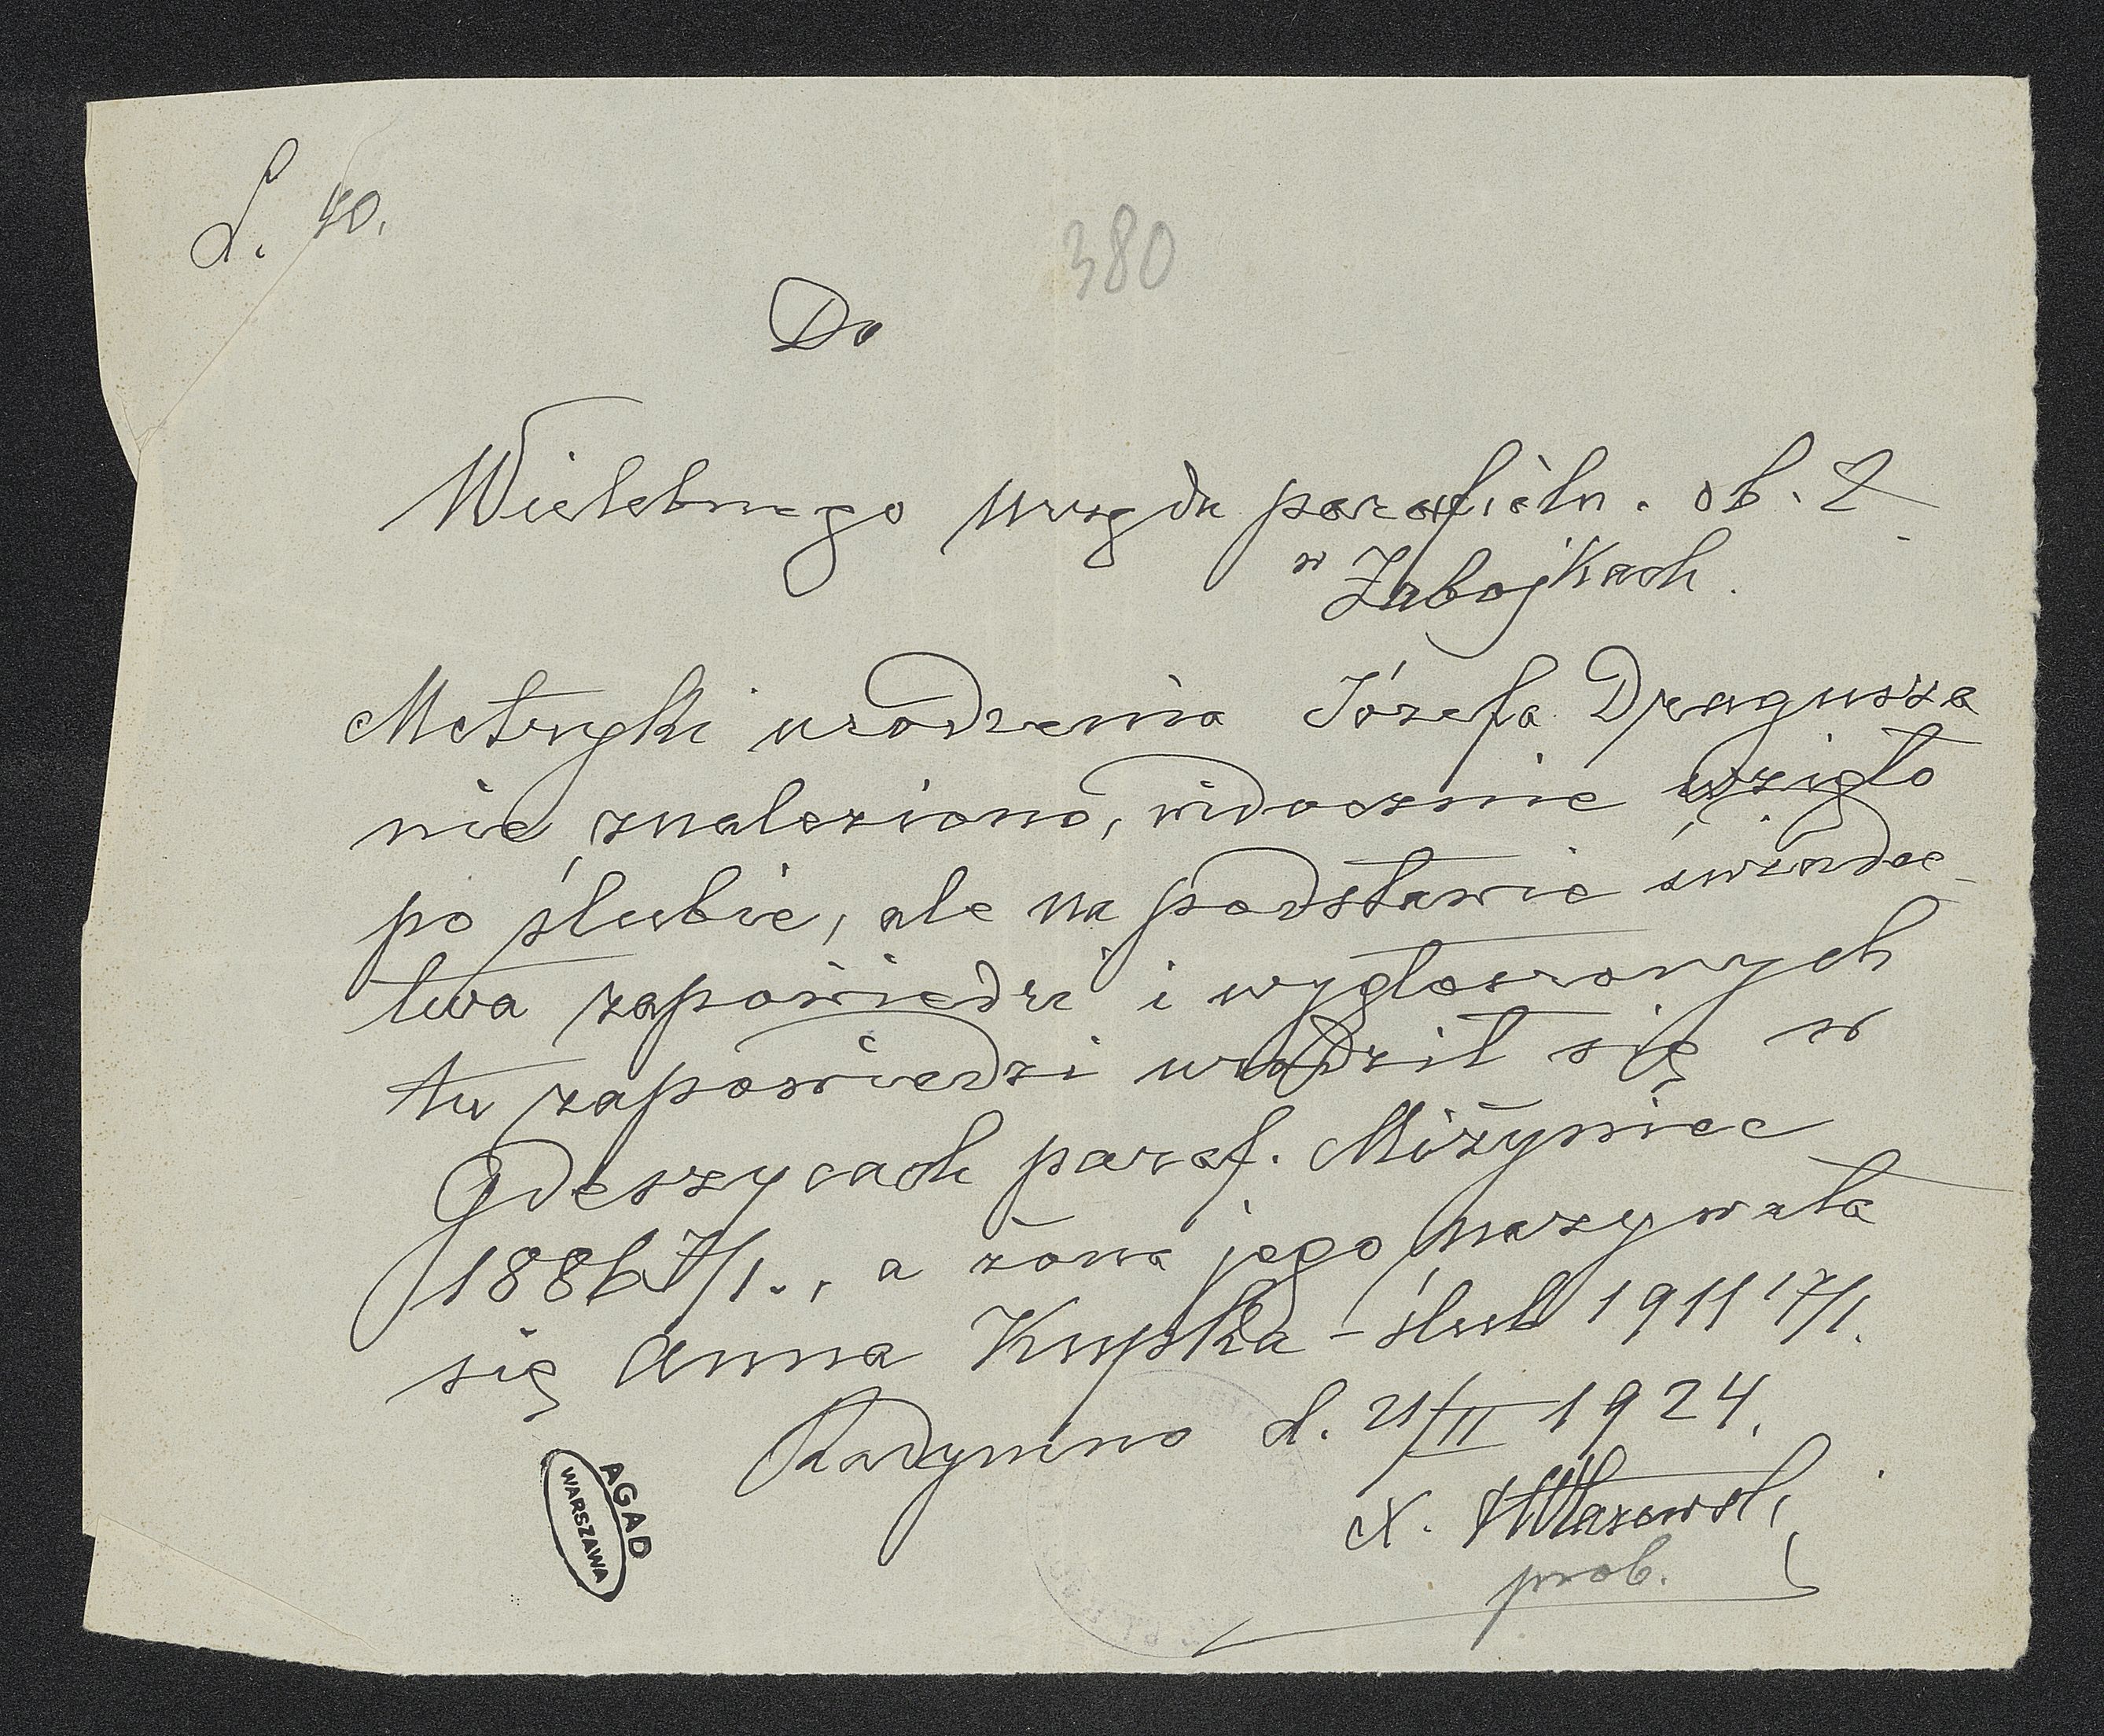 L. 40.
380
Do
Wielebnego urzędu parafialn. ob. ł.
w Zabojkach.
Metryki urodzenia Józefa Dragusza
nie znaleziono, widocznie wzięto
po ślubie, ale na podstawie świadec-
twa zapowiedzi i wygłoszonych
tu zapowiedzi urodził się w
Gdeszycach paraf. Miżyniec
1886 7/1., a żona jego nazywała
się Anna Kupka – ślub 1911 17/1.
Radymno d. 21/II 1924.
X.
prob.
AGAD
WARSZAWA